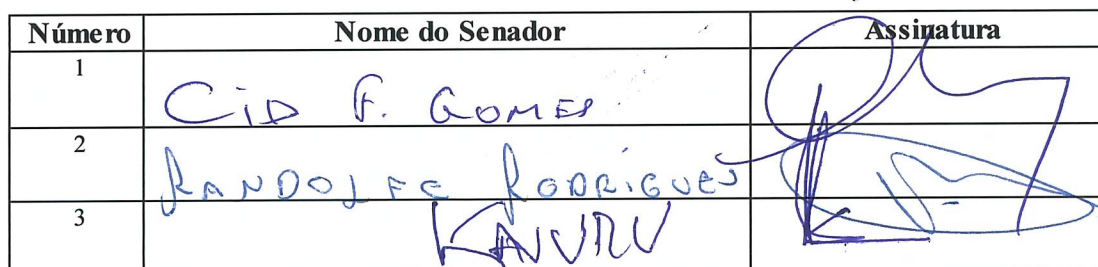 Número Nome do Senador Assinatura
1 CiD F. GOMES
2 RANDOLFE RODRIGUES
3 KAJURU